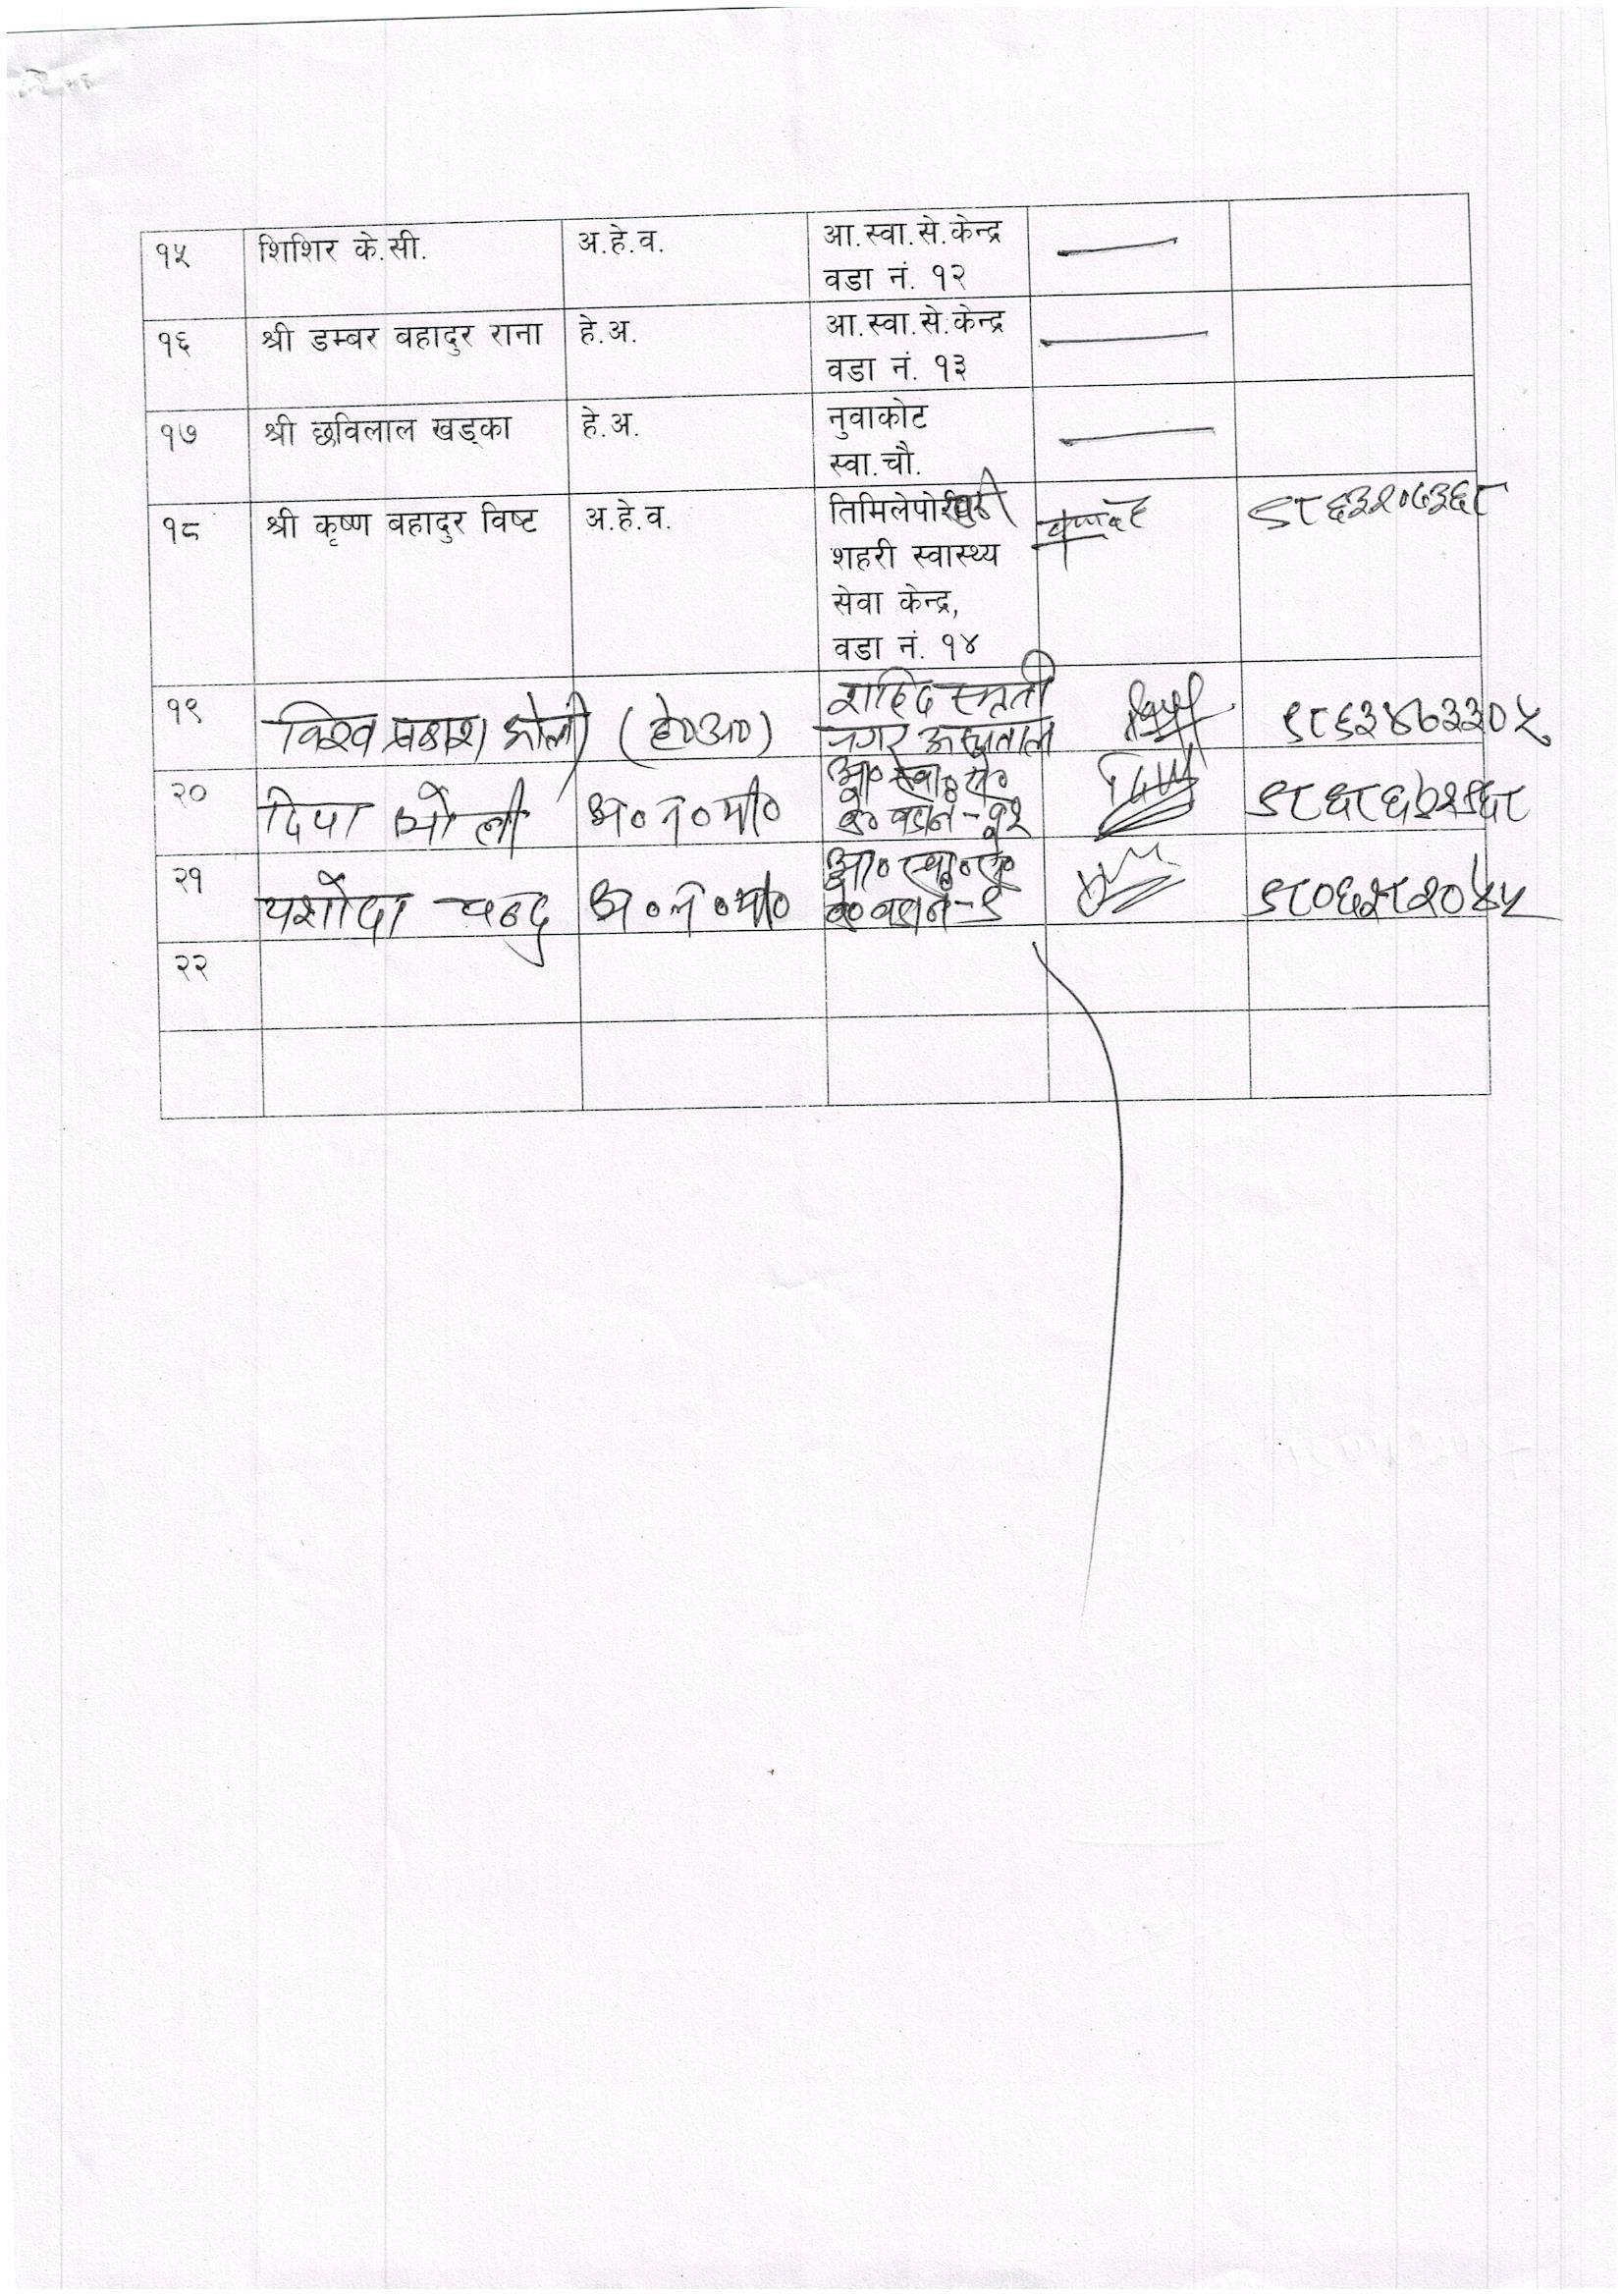 १५ शिशिर के.सी. अ.हे.व. आ.स्वा.से.केन्द्र
वडा नं. १२
१६ श्री डम्बर बहादुर राना हे.अ. आ.स्वा.से.केन्द्र
वडा नं. १३
१७ श्री छविलाल खड्का हे.अ. नुवाकोट
स्वा.चौ.
१८ श्री कृष्ण बहादुर विष्ट अ.हे.व.
शहरी स्वास्थ्य
सेवा केन्द्र,
वडा नं. १४
१९ विश्व प्रकाश ओली (हे०अ०) शहिद स्मृती
नगर अस्पताल ९८६३४७३३०५
२० दिपा ओली अ०न०मी० आ०स्वा०से०
के० वडा नं-११
२१ यशोदा चन्द अ०न०मी० आ०स्वा०से०
के० वडा नं-९
२२